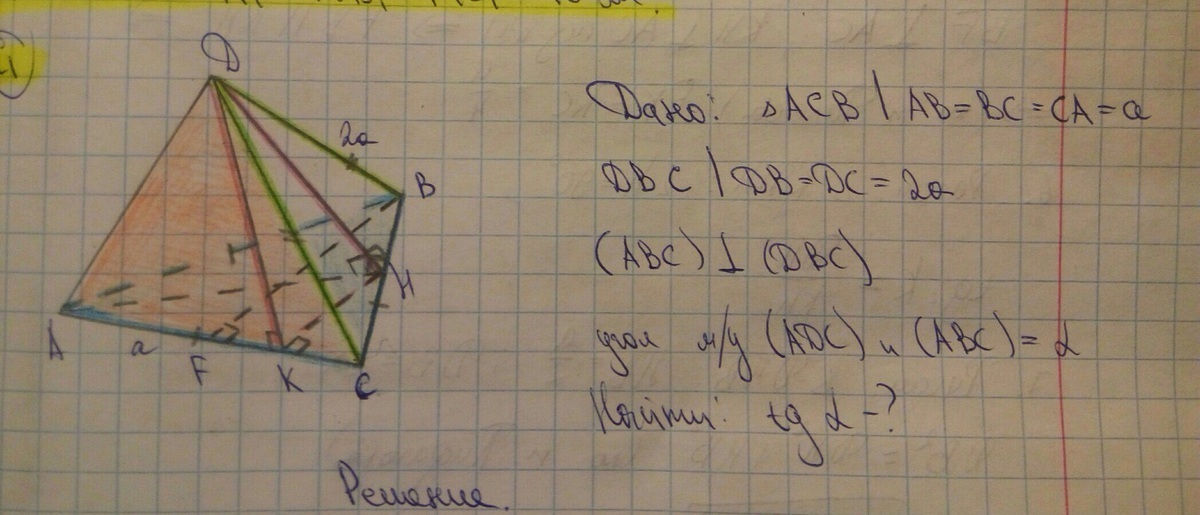 D
2a
B
H
A
a
F
K
C
Дано: △ACB | AB=BC=CA=a
DBC | DB=DC=2a
(ABC)⊥(DBC)
угол м/у (ADC) и (ABC)=α
Найти: tg α-?
Решение.